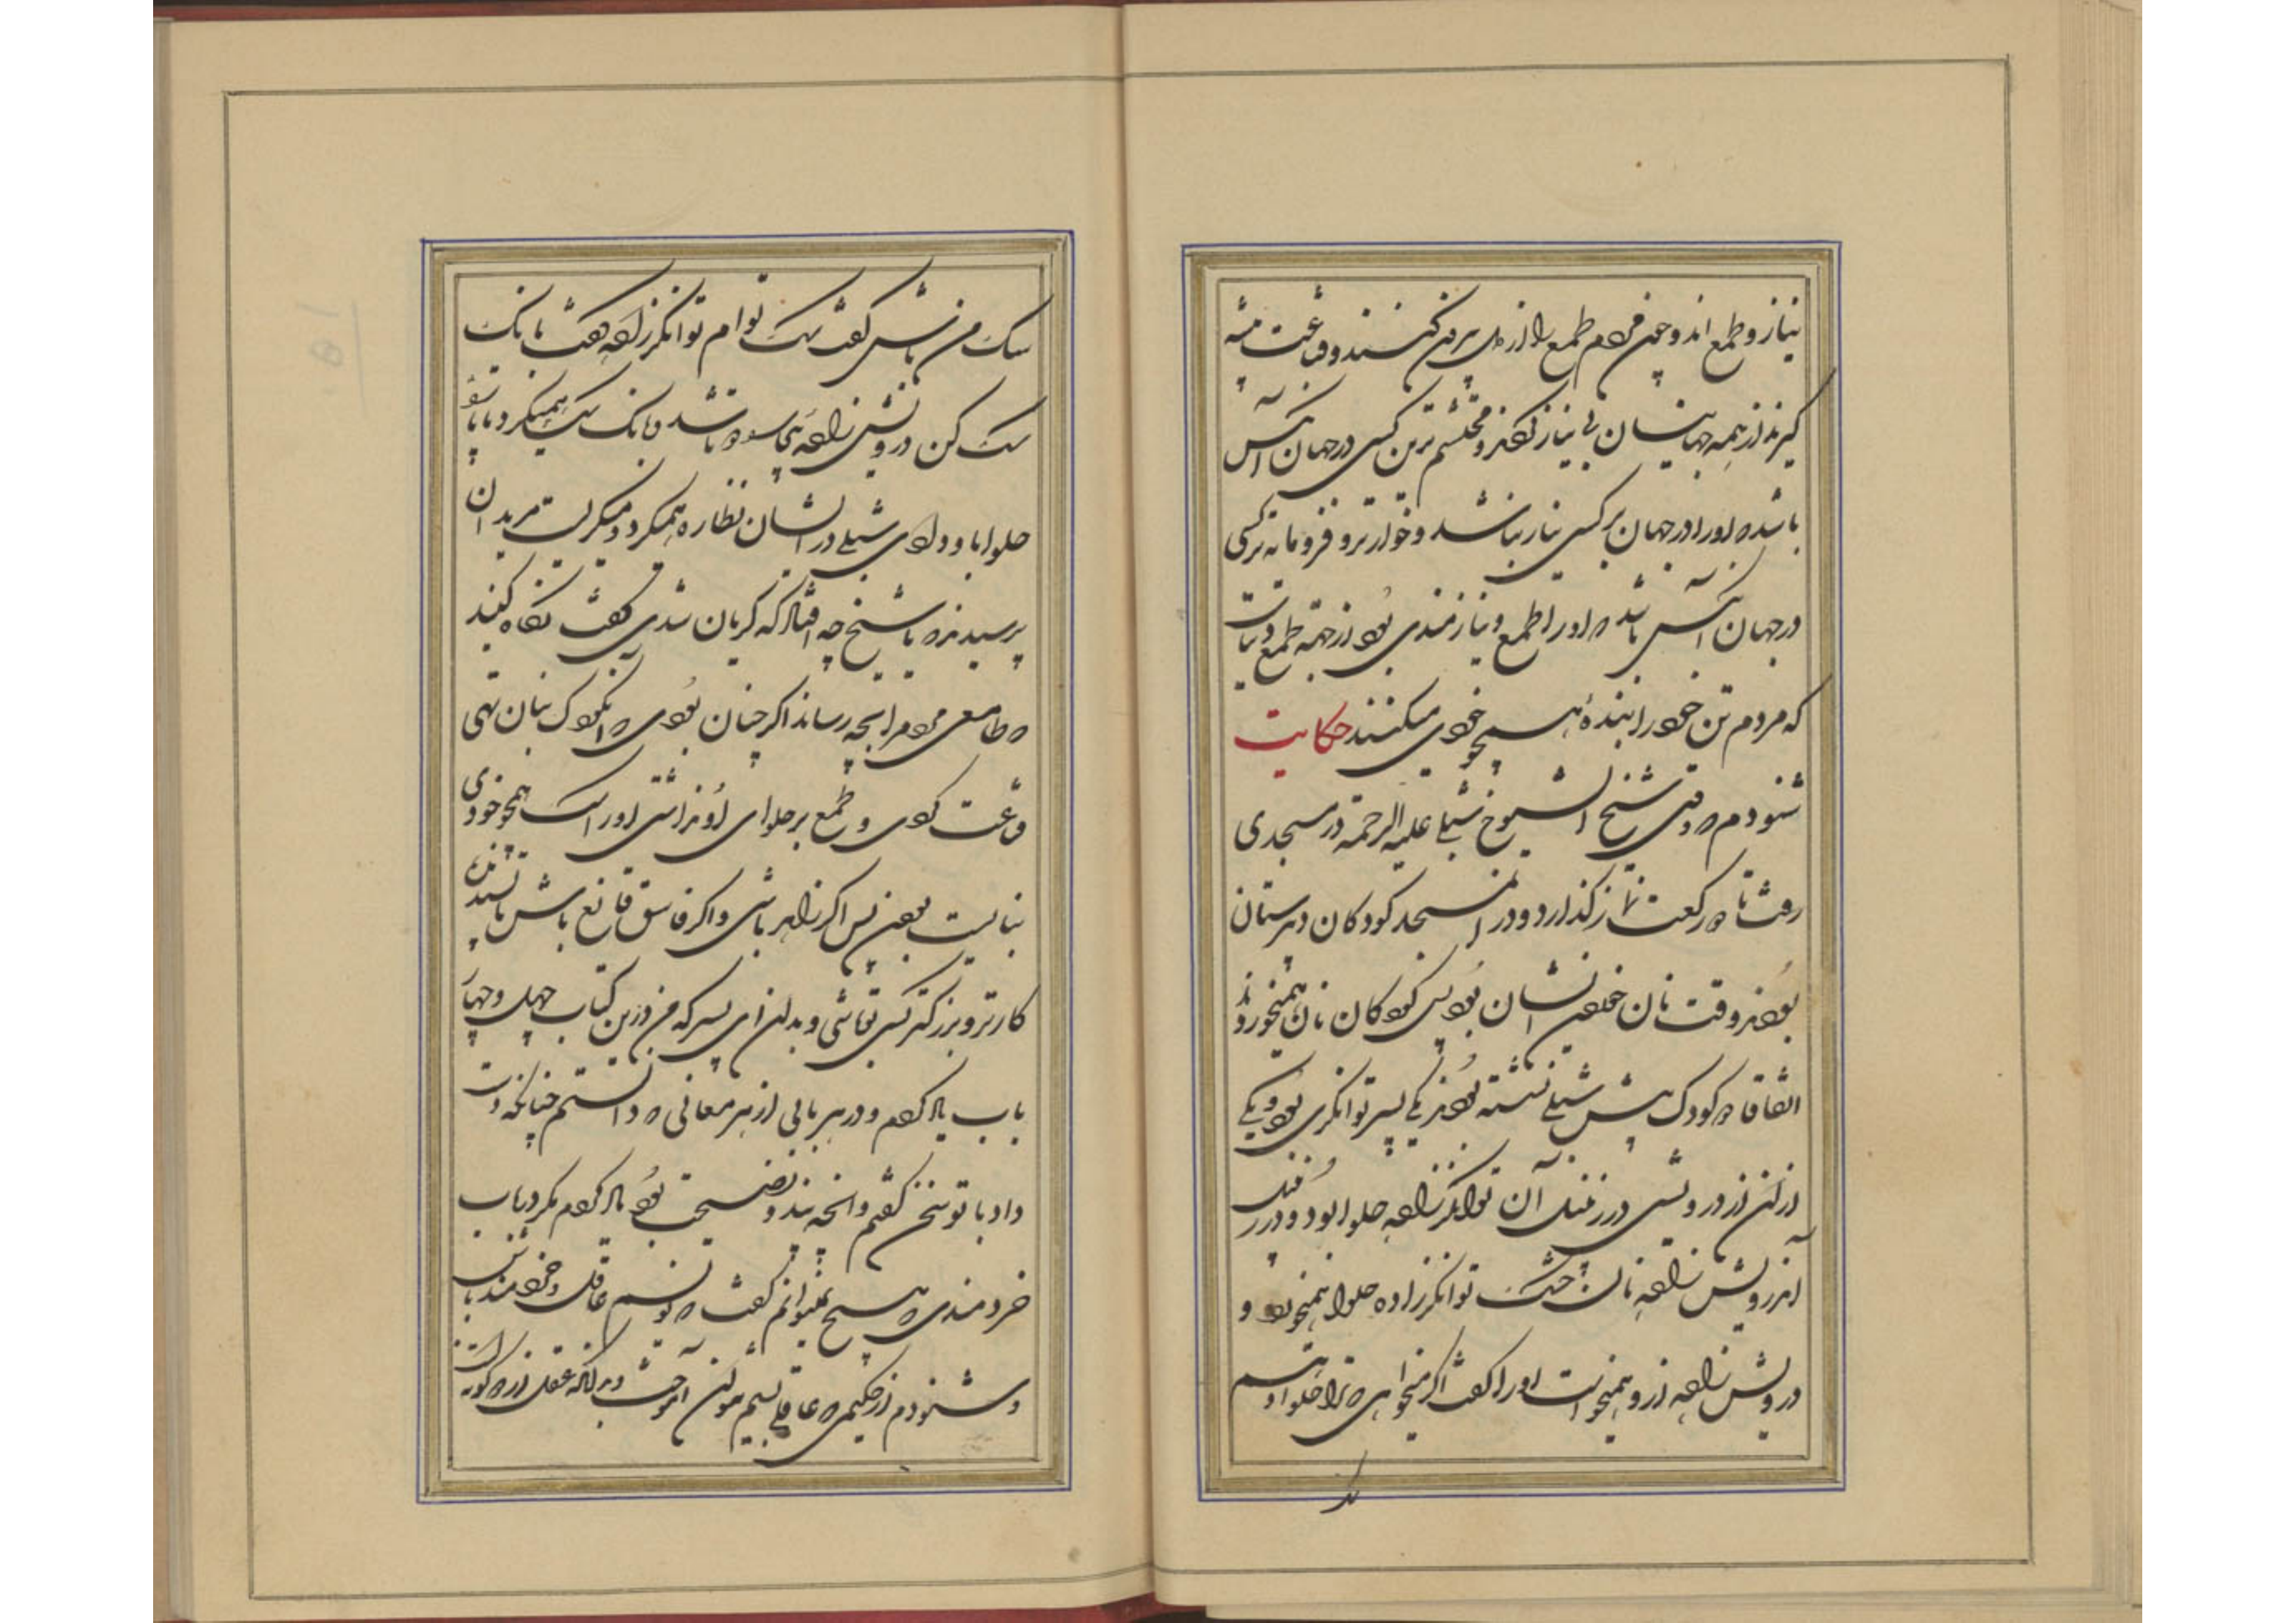 نیاز و طمع اند و چون مردم طمع را از دل بیرون کنند و قناعت پیشه
گیرند از همه جهانیان بی نیاز گردند و محتشم ترین کسی در جهان آنکس
باشد که او را در جهان بر کسی نیاز نباشد و خوارتر و فرومایه تر کسی
در جهان آنکس باشد که او را طمع و نیازمندی بود از جهة طمع و نیازست
که مردم تن خود را بندهٔ همچو خودی میکنند حکایت
شنودم که وقتی شیخ الشیوخ شبلی علیه الرحمة در مسجدی
رفت تا دو رکعت نماز گذارد و در آن مسجد کودکان دبیرستان
بودند وقت نان خوردن ایشان بود پس کودکان نان همیخوردند
اتفاقا دو کودک پیش شبلی نشسته بودند یکی پسر توانگری بود و یکی
از آن از درویشی در زنبیل آن توانگر زاده حلوا بود و در زنبیل
آن درویش زاده نان خشک توانگرزاده حلوا همیخورد و
درویش زاده از و همیخواست او را گفت اگر میخواهی که ترا حلوا دهم
سگ من باش گفت سگ توام توانگر زاده گفت بانگ
سگ کن درویش زاده بیچاره بانگ سگ همیکرد تا پارهٔ
حلوا با و دادی شبلی در ایشان نظاره همیکرد و میگریست مریدان
پرسیدند که یا شیخ چه افتاد که گریان شدی گفت نگاه کنید
که طامعی مردم را بچه رساند اگر چنان بودی که آن کودک بنان تهی
قناعت کردی و طمع بر حلوای او نداشتی او را سگ همچو خودی
نبایست بودن پس اگر زاهد باشی و اگر فاسق قانع باش و پسند
کارتر و بزرگتر کسی تو باشی و بدان ای پسر که من درین کتاب چهل و چهار
باب یاد کردم و در هر بابی از هر معانی که دانستم چنانکه دست
داد با تو سخن گفتم و آنچه پند و نصیحت بود یاد کردم مگر در باب
خردمندی که هیچ نمیتوانم گفت که گویم عاقل و خردمند باش
و شنودم از حکیمی که عاقلی بستم نتوان آموخت و بدانکه عقل از دو گونه است